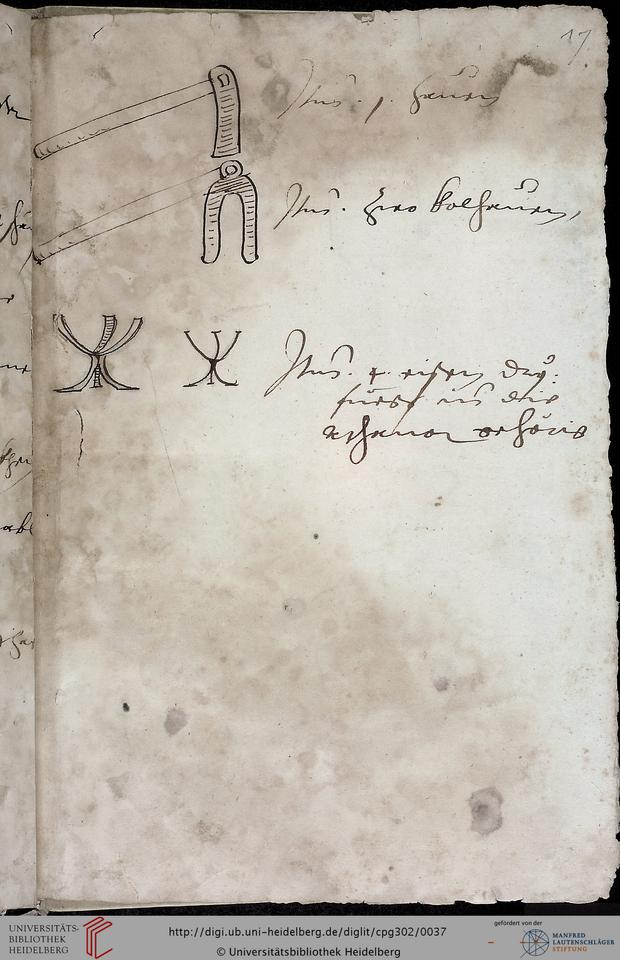 17
Itm̃. 1. hauen
Itm̃. zwo kolhauen,
Itm̃. 4. eisen dry:
fuess in die
gehörig
UNIVERSITÄTS-
BIBLIOTHEK
HEIDELBERG
http://digi.ub.uni-heidelberg.de/diglit/cpg302/0037
© Universitätsbibliothek Heidelberg
gefördert von der
MANFRED
LAUTENSCHLÄGER
STIFTUNG